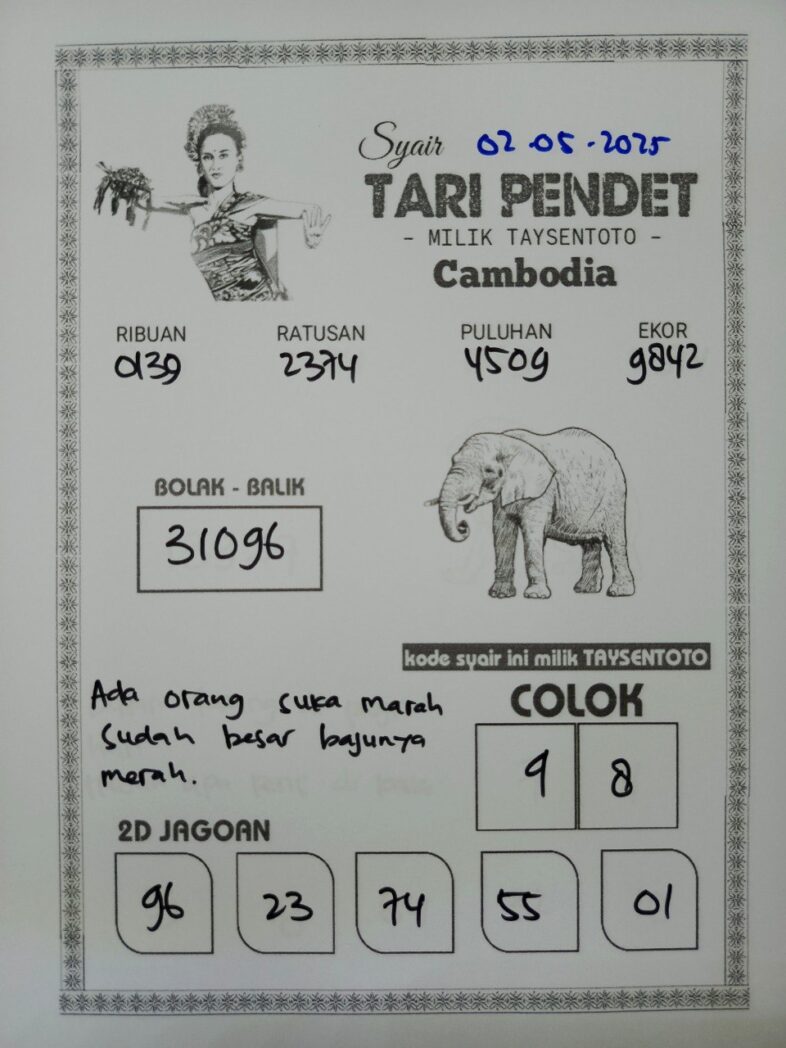 Syair 02-05-2025
TARI PENDET
- MILIK TAYSENTOTO -
Cambodia
RIBUAN RATUSAN PULUHAN EKOR
0139 2374 4509 9842
BOLAK - BALIK
31096
kode syair ini milik TAYSENTOTO
Ada orang suka marah
sudah besar bajunya
merah.
COLOK
9 8
2D JAGOAN
96 23 74 55 01